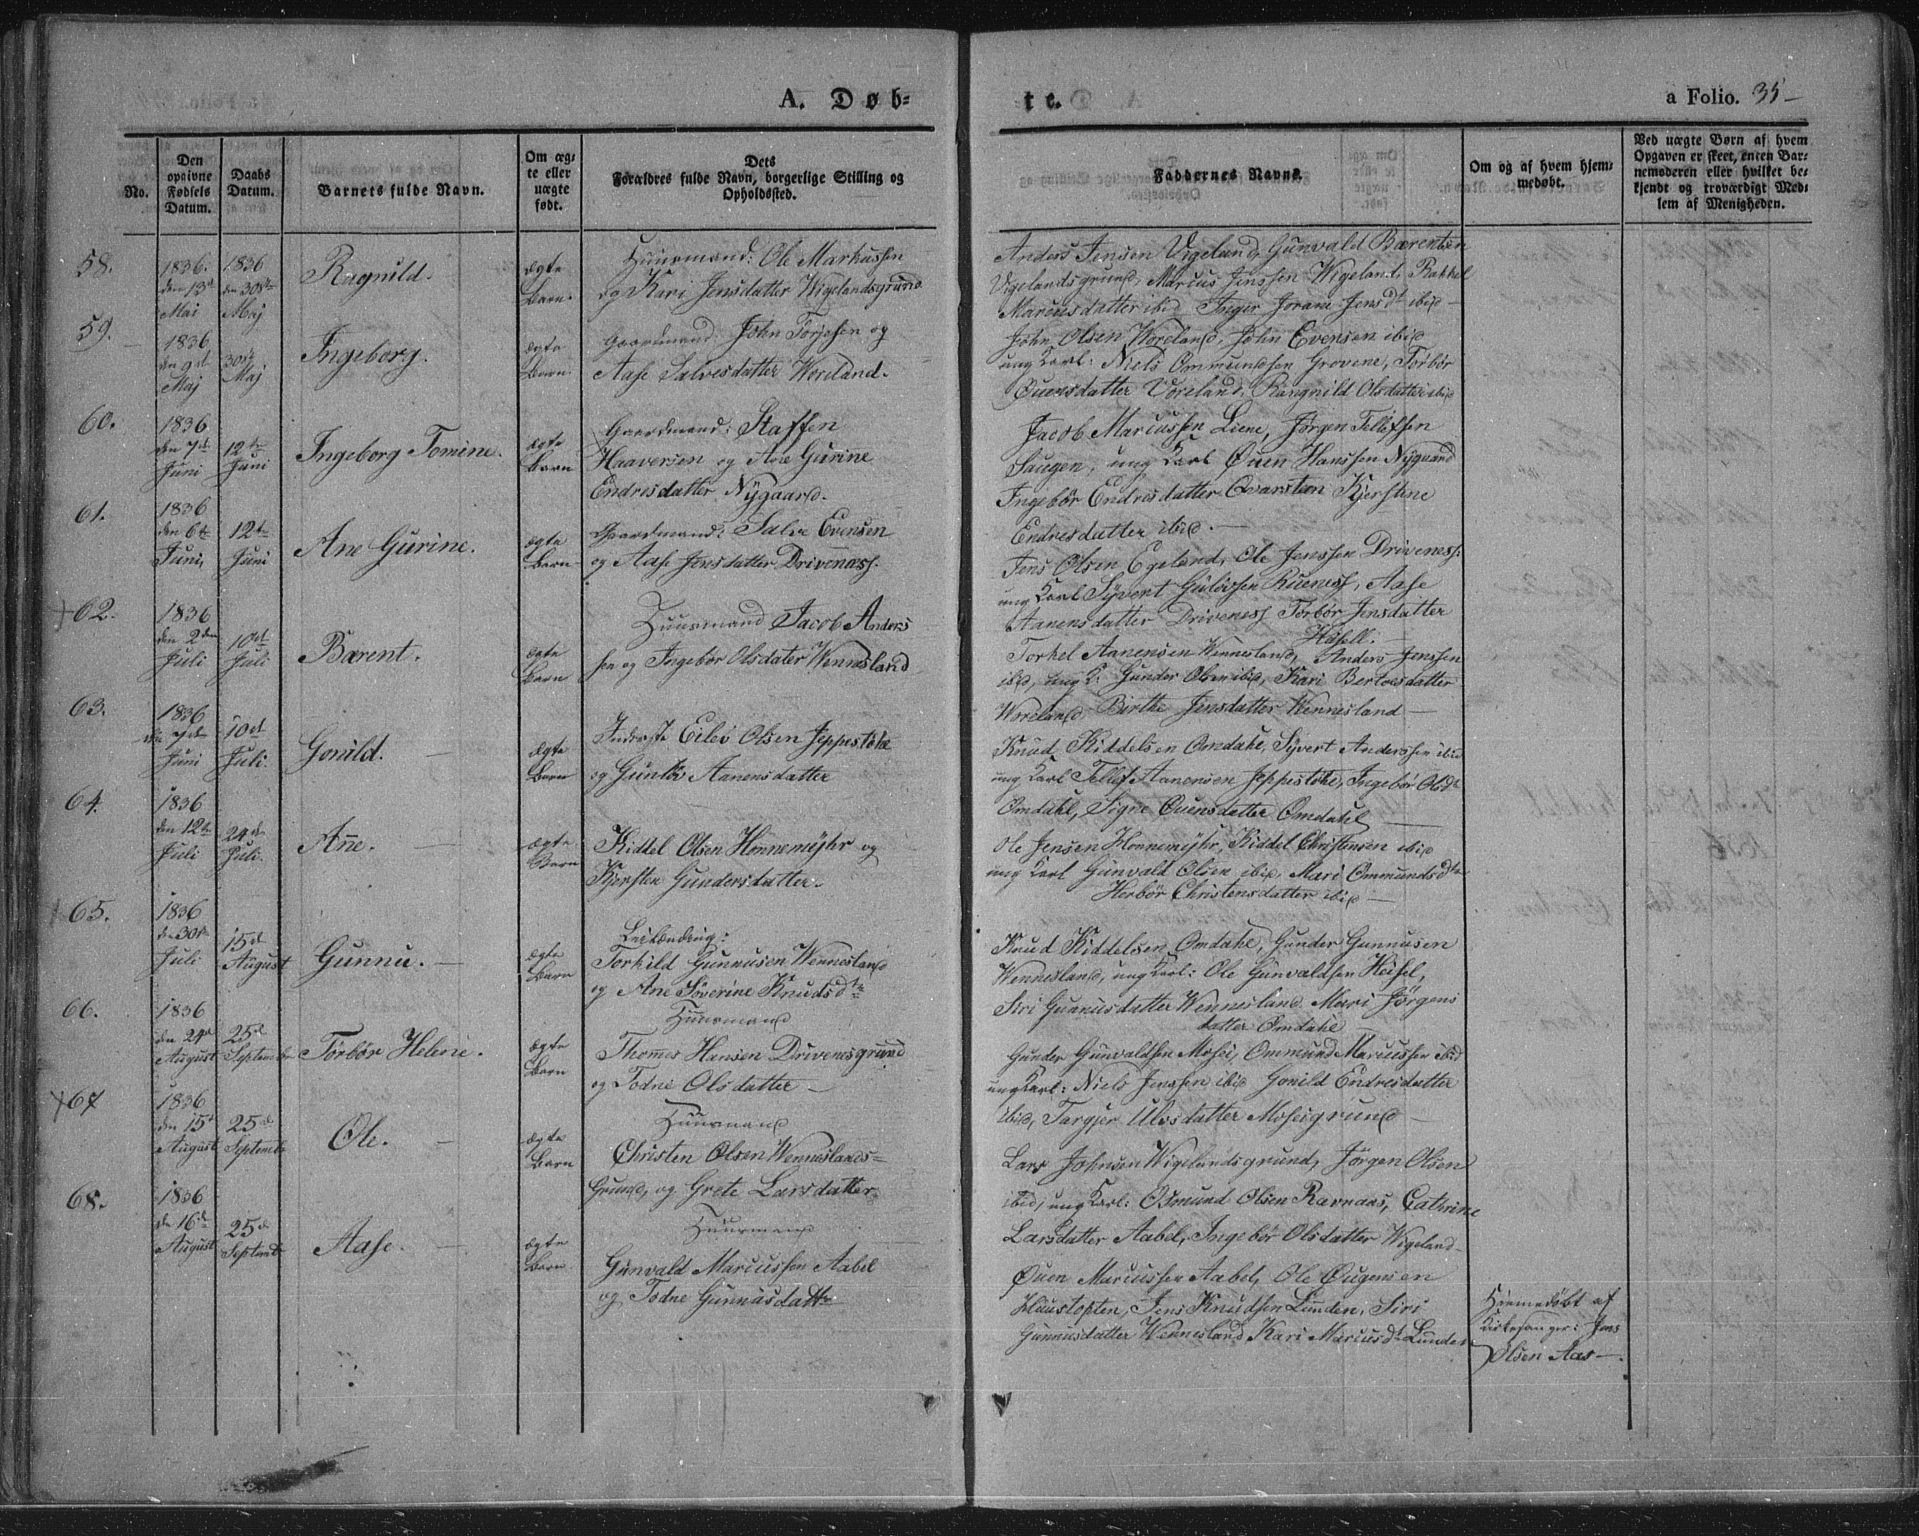 A. Døb-
te.
a Folio. 35-
No.
Den opgivne Fødsels Datum.
Daabs Datum.
Barnets fulde Navn.
Om ægte eller uægte født.
Dets Forældres fulde Navn, borgerlige Stilling og Opholdssted.
Faddernes Navne.
Om og af hvem hjemmedøbt.
Ved uægte Børn af hvem Opgaven er skeet, enten Barnemoderen eller hvilket bekjendt og troværdigt Medlem af Menigheden.
58.
1836.
den 13de
Mai
1836
den 30te
Maj
Ragnild.
ægte
Barn.
Huusmand: Ole Markussen
og Kari Jensdatter Wigelandsgrund
Anders Jensen Vigeland, Gunvald Bærentsen
Vigelandsgrund, Marcus Jenssen Wigeland, Rakkel
Marcusdatter ibid Inger Jorane Jensdt ibid
59.
1836
den 9de
Maj
30te
Maj
Ingeborg.
ægte
Barn.
Gaardmand: John Torjesen og
Aase Salvesdatter Woreland.
John Olsen Woreland, John Evensen ibid
ung Karl: Niels Ommundsen Grovene, Torbør
Øuensdatter Voreland, Rangnild Olsdatter ibid
60.
1836
den 7de
Juni
12te
Juni
Ingeborg Tomine.
ægte
Barn
Gaardmand: Staffen
Haaversen og Ane Gurine
Endresdatter Nygaard.
Jacob Marcussen Liene, Jørgen Tellefsen
Saugen, ung Karl Øuen Hanssen Nygaard
Ingebør Endresdatter Qvarsten Kjerstine
Endresdatter ibid.
61.
1836
den 6te
Juni,
12te
Juni
Ane Gurine.
ægte
Barn
Gaardmand: Salve Evensen
og Aase Jensdatter Drivenæss.
Jens Olsen Egeland, Ole Jenssen Driveness.
ung Karl Syvert Guloissen Rueness, Aase
Aanensdatter Driveness Torbør Jensdatter
Hæsell.
62.
1836
den 2den
Juli
10de
Juli
Bærent.
ægte
Barn
Huusmand Jacob Anders
sen og Ingebør Olsdater Wennesland
Torkel Aanensen Wennesland, Anders Jenssen
ibid, ung K: Gunder Olsen ibid, Kari Bertoesdatter
Woreland Birthe Jensdatter Wennesland
63.
1836
den 7de
Juni
10de
Juli.
Gonild.
ægte
Barn
Inderste Eilev Olsen Jeppestole
og Guntør Aanensdatter
Knud Kiddelsen Omdahl, Syvert Anderssen ibid
ung Karl Tellef Aanensen Jeppestole, Ingebør Olsdt
Omdahl, Sigre Øuensdatter Omdahl
64.
1836
den 12te
Juli
24de
Juli.
Ane.
ægte
Barn
Kiddel Olsen Honnemyhr og
Kjersten Gundersdatter.
Ole Jensen Honnemyhr, Kiddel Christensen ibid
ung Karl Gunvald Olsen ibid, Mari Ommundsdtr
Herbør Christensdatter ibid
65.
1836
den 30te
Juli
15de
August
Gunnu.
ægte
Barn
Leilænding:
Torkild Gunnusen Wennesland
og Ane Søverine Knudsdtr
Knud Kiddelsen Omdahl, Gunder Gunnusen
Wennesland, ung Karl: Ole Gunvaldsen Heisel,
Siri Gunnusdatter Wennesland Mari Jørgens
datter Omdahl
66.
1836
den 24de
August
25de
September
Torbør Helene.
ægte
Barn
Huusmand
Thomes Hansen Drivenesgrund
og Todne Olsdatter
Gunder Gunvaldsen Mosei, Ommund Marcussen ibid
ung Karl: Niels Jenssen ibid Gonild Endresdatter
ibid, Targjer Ulvsdatter Moseigrund
67
1836
den 15de
August
25de
September
Ole.
ægte
Barn
Huusmand
Christen Olsen Wenneslands=
Grund, og Grete Larsdatter
Lars Johnsen Wigelandsgrund, Jørgen Olsen
ibid, ung Karl: Osmund Olsen Ravnaas, Cathrine
Larsdatter Aabel, Ingebør Olsdatter Wigeland
68.
1836
den 16de
August
25de
Septembr
Aase.
ægte
Barn
Huusmand
Gunvald Marcussen Aabel
og Todne Gunnusdattr
Øuen Marcussen Aabel, Ole Øugensen
Huustopten, Jens Knudsen Lunden, Siri
Gunnusdatter Wennesland Kari Marcusdt Lunden
Hiemedøbt af
Kirkesanger: Jens
Olsen Aas